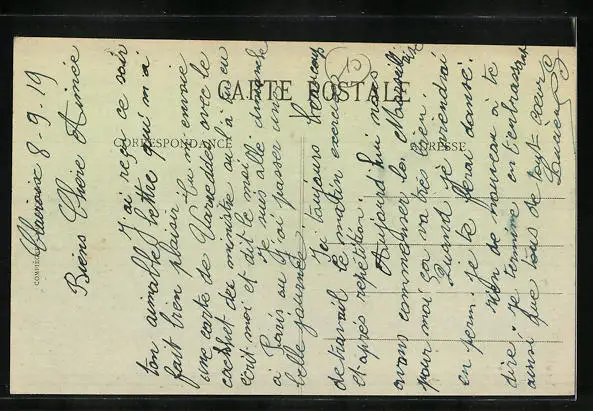 CARTE POSTALE
CORRESPONDANCE
ADRESSE
8-9-19
Biens Chère Aimée
J'ai reçu ce soir
ton aimable lettre qui m'a
fait bien plaisir. Tu m'a envoie
une carte de avec le
cachet du ministre ou l'a t'en
écrit moi et dit le moi.
Je suis allé dimanche
à Paris ou j'ai passer une
belle journée.
Ici toujours beaucoup
de travail le matin exercice
et après répétition.
Aujourd'hui nous
avons commencer les
pour moi ça va très bien.
Quand je reviendrai
en perm. je te ferai danser.
Rien de nouveau à te
dire. Je termine en t'embrassant
ainsi que tous de tout cœur